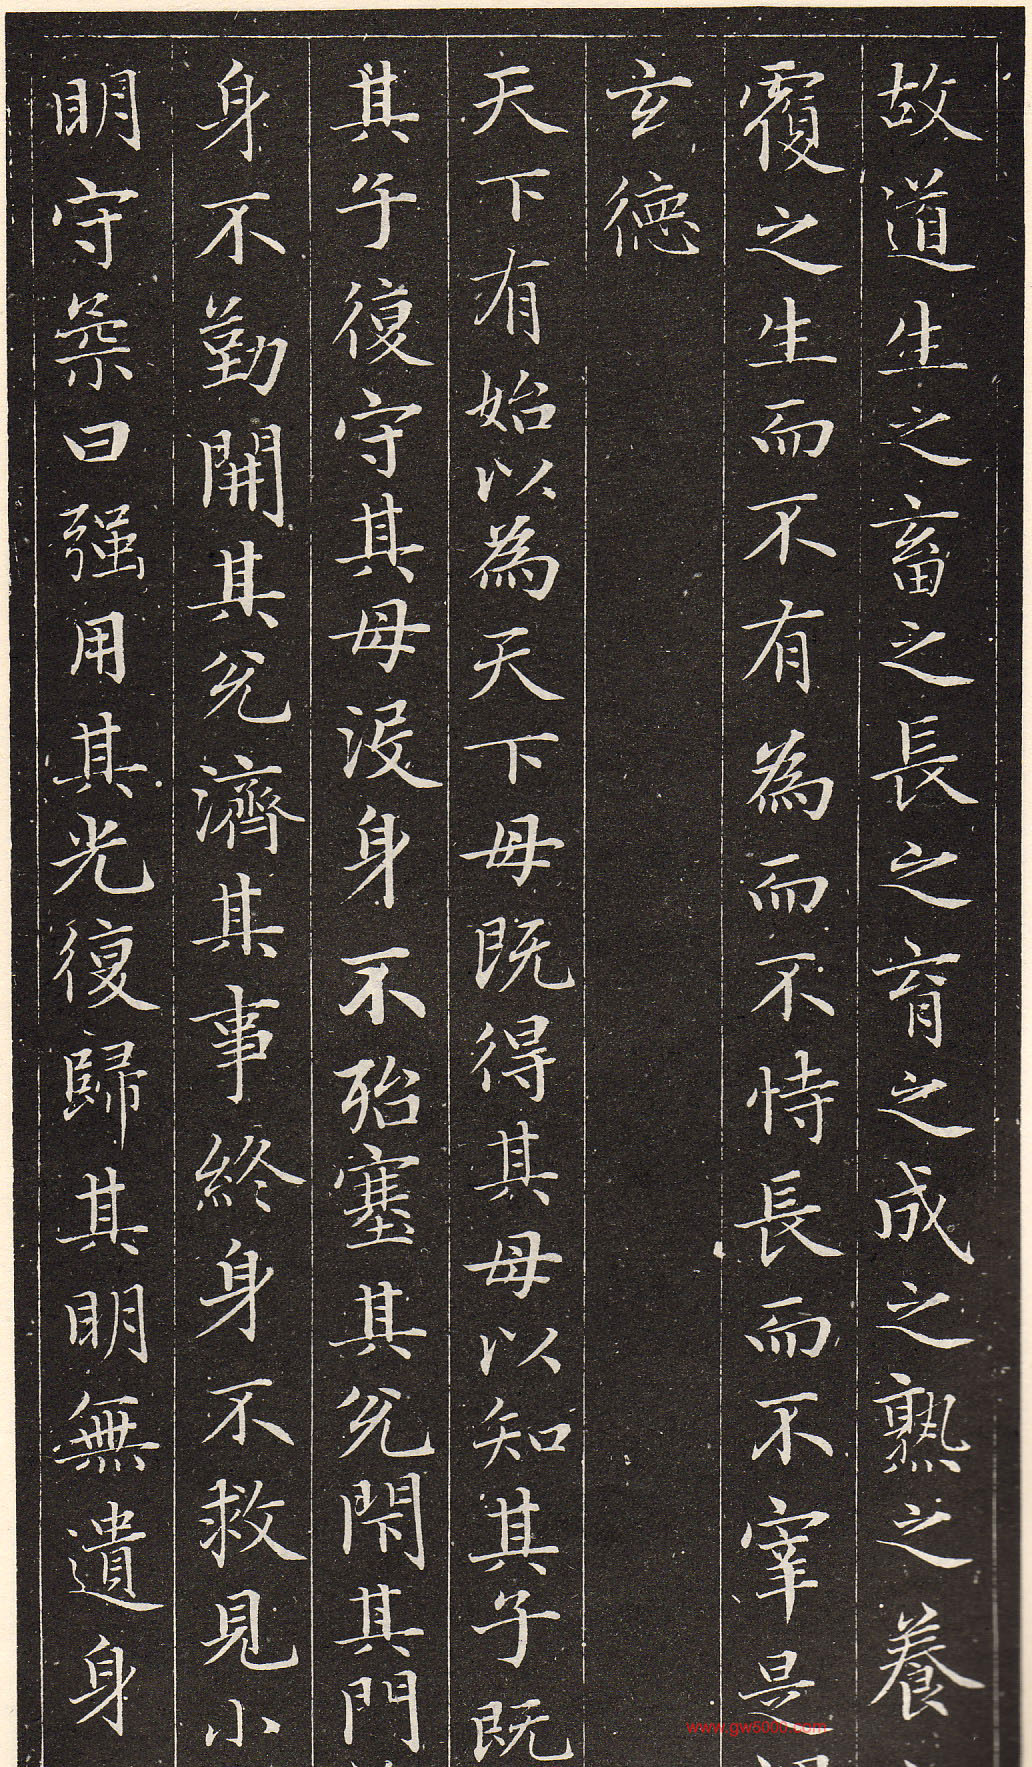 故道生之畜之長之育之成之熟之養
覆之生而不有為而不恃長而不宰是
玄德
天下有始以為天下母既得其母以知其子既
其子復守其母没身不殆塞其兊閇其門
身不勤開其兊濟其事終身不救見小
明守柔曰强用其光復歸其明無遺身
www.gw5000.com